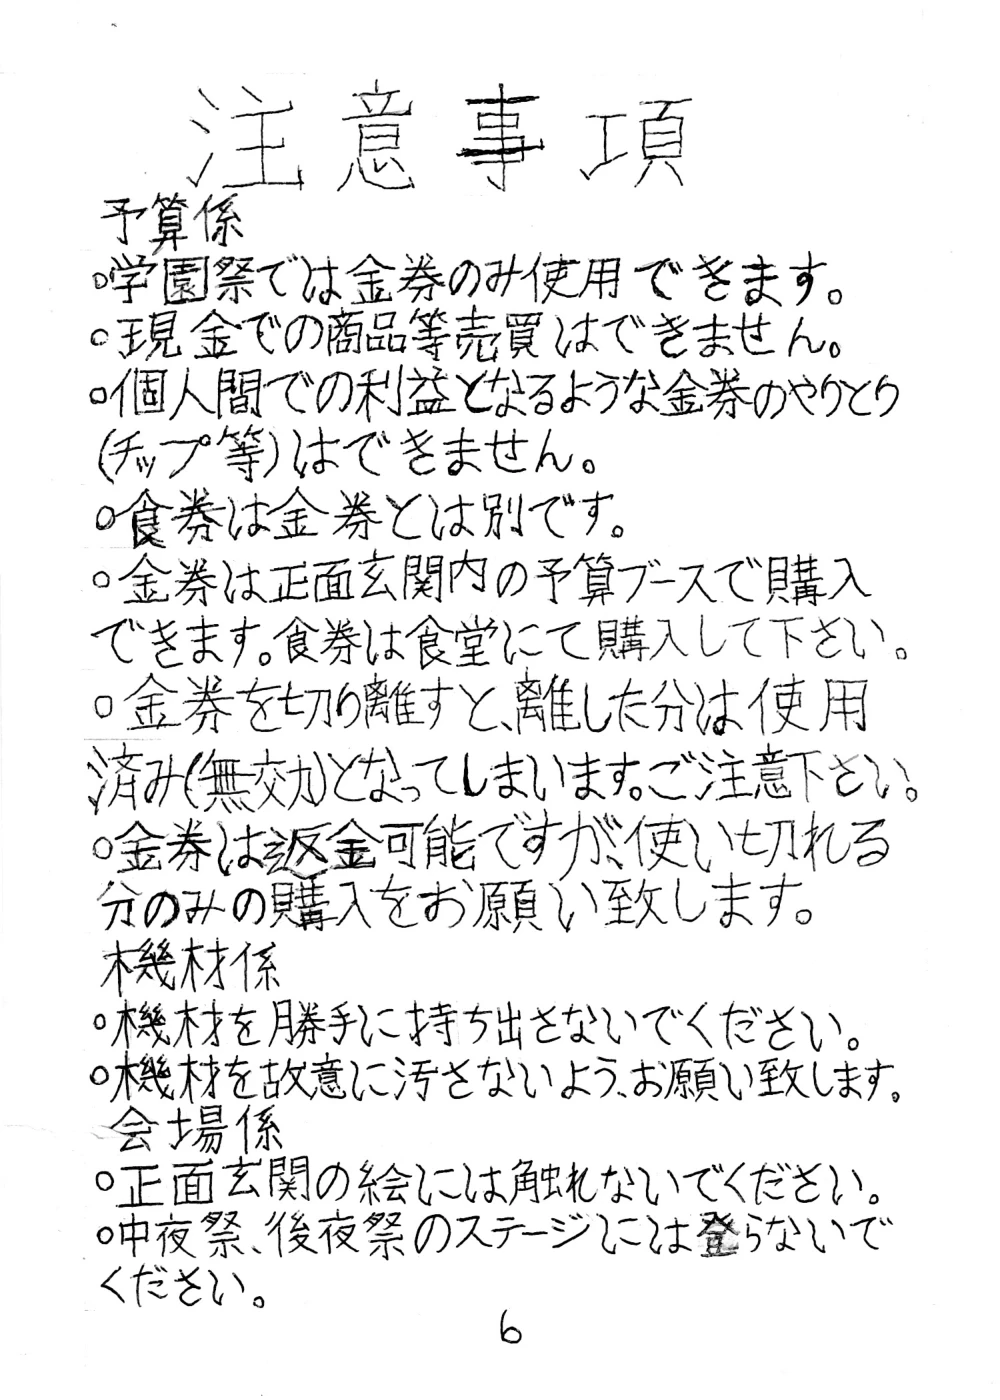 注意事項
予算係
○学園祭では金券のみ使用できます。
○現金での商品等売買はできません。
○個人間での利益となるような金券のやりとり
(チップ等)はできません。
○食券は金券とは別です。
○金券は正面玄関内の予算ブースで購入
できます。食券は食堂にて購入して下さい。
○金券を切り離すと、離した分は使用
済み(無効)となってしまいます。ご注意下さい。
○金券は返金可能ですが、使い切れる
分のみの購入をお願い致します。
機材係
○機材を勝手に持ち出さないでください。
○機材を故意に汚さないよう、お願い致します。
会場係
○正面玄関の絵には触れないでください。
○中夜祭、後夜祭のステージには登らないで
ください。
6